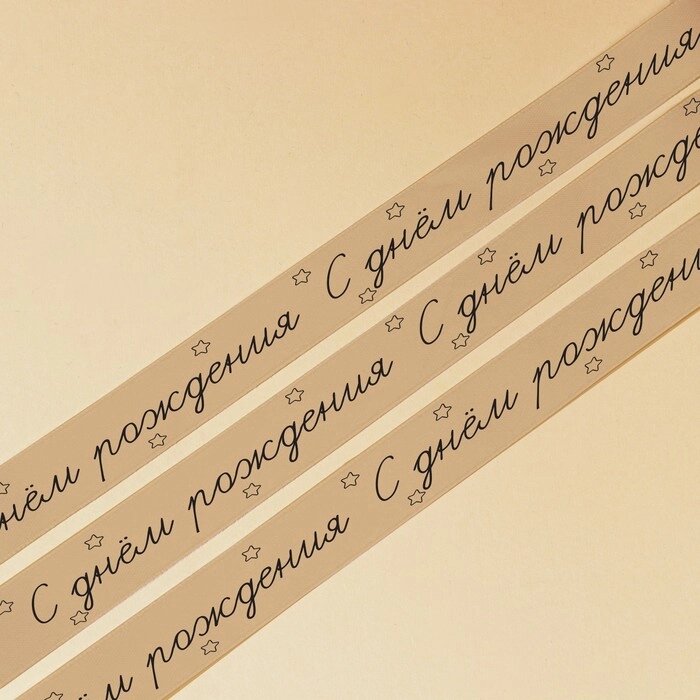 нём рождения С днём рождения
С днём рождения С днём рожде
м рождения С днём рождени